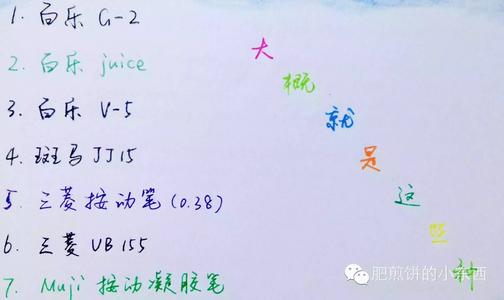 1. 百乐 G-2
2. 百乐 juice
3. 百乐 V-5
4. 斑马 JJ15
5. 三菱按动笔(0.38)
6. 三菱 UB 155
7. Muji 按动凝胶笔
大概就是这些种
肥煎饼的小东西